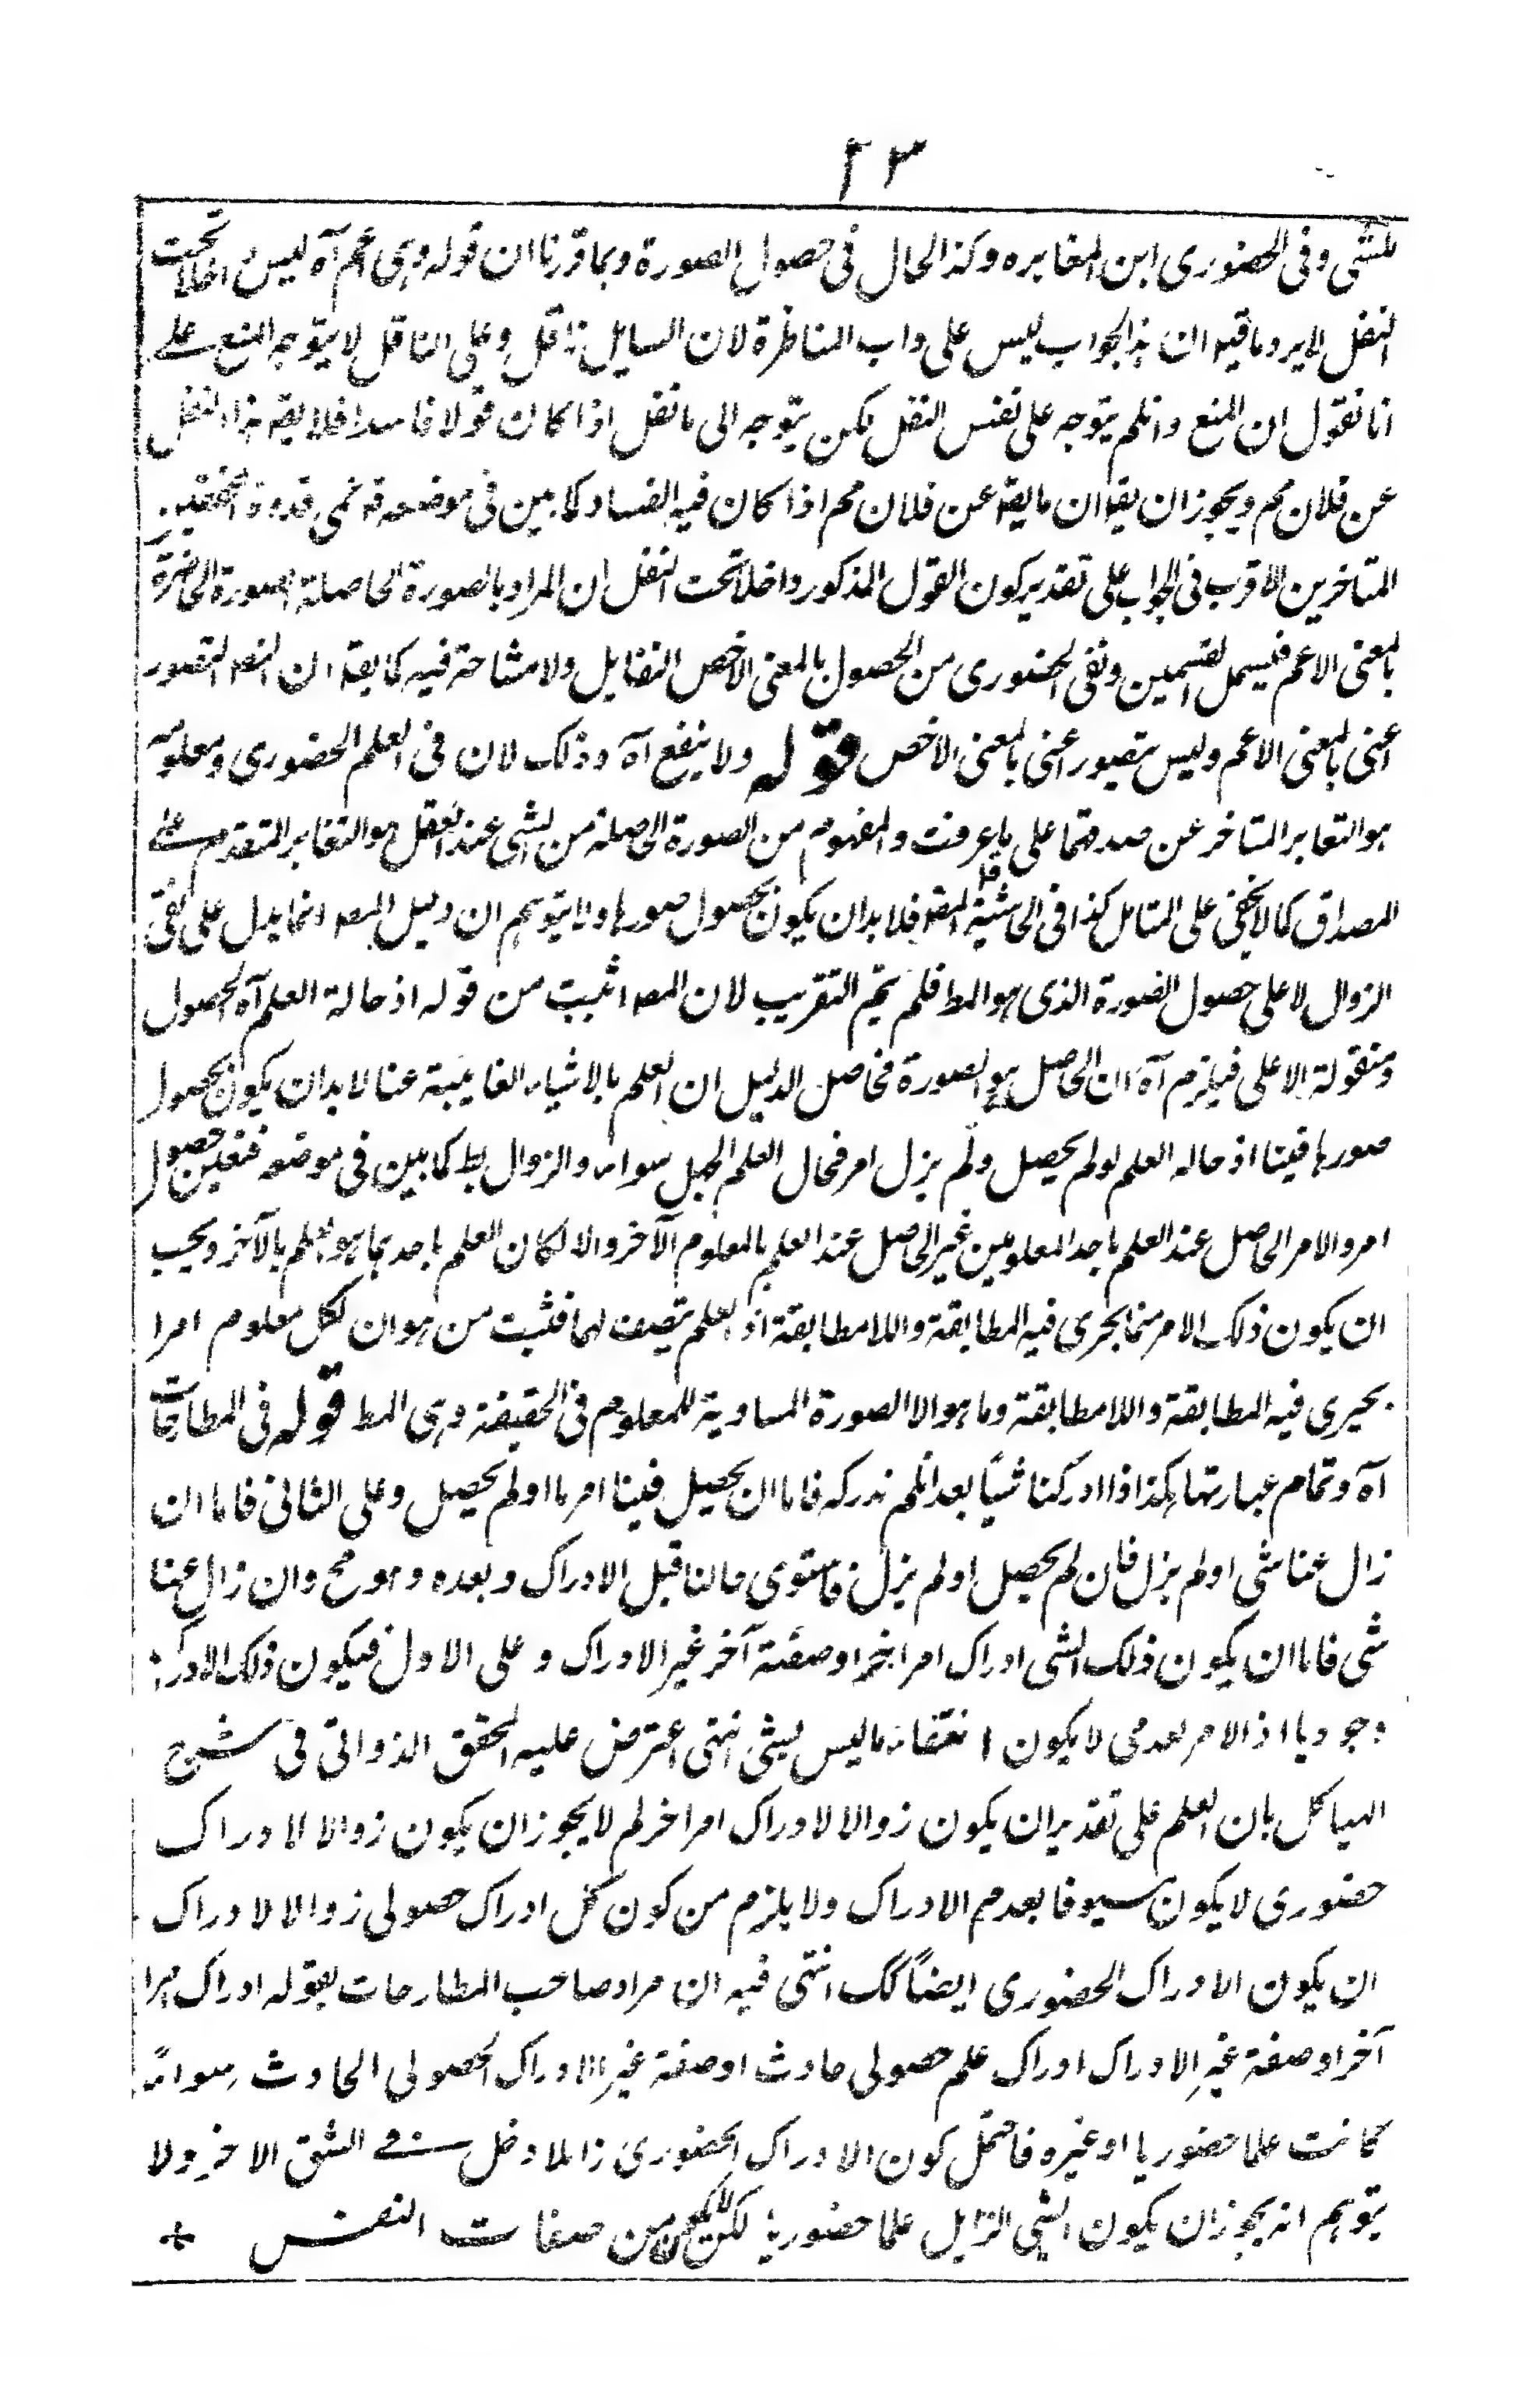 ٢٣
للشى وفى الحضورى اين المغايره وكذا الحال فى حصول الصورة وبما قررنا ان قوله وهى اعم آه ليس داخلا تحت
النقل لا يرد ما قيل ان هذا الجواب ليس على داب المناظرة لان السايل ناقل وعلى الناقل لا يتوجه المنع على
انا نقول ان المنع وان لم يتوجه على نفس النقل لكن يتوجه الى ما نقل اذا كان قولا فاسدا فلا يقه هذا النقل
عن فلان مم ويجوز ان يقه ان ما يقه عن فلان مم اذا كان فيه الفساد كما بين فى موضعه قدوة المحققين
المتاخرين الاقرب فى الجواب على تقدير كون القول المذكور داخلا تحت النقل ان المراد بالصورة الحاصلة الصورة الحاضرة
بالمعنى الاعم فيشمل القسمين ونفى الحضورى من الحصول بالمعنى الاخص المقابل ولا مشاحة فيه كما يقه ان التصور
اعنى بالمعنى الاعم وليس بتصور اعنى بالمعنى الاخص قوله ولا ينفع آه وذلك لان فى العلم الحضورى ومعلومه
هو التغاير المتاخر عن صدقهما على ما عرفت والمفهوم من الصورة الحاصلة من الشى عند العقل هو التغاير المتقدم على
المصداق كما لا يخفى على المتامل كذا فى الحاشية قوله فلا بد ان يكون بحصول صورها ولا يتوهم ان دليل المصه انما يدل على نفى
الزوال لا على حصول الصورة الذى هو المط فلم يتم التقريب لان المصه اثبت من قوله اذ حالة العلم آه الحصول
ومنقولة الاعلى فيلزم آه ان الحاصل هو الصورة فحاصل الدليل ان العلم بالاشياء الغايبة عنا لا بد ان يكون بحصول
صورها فينا اذ حاله العلم لو لم يحصل ولم يزل امر فحال العلم والجهل سواء والزوال بط كما بين فى موضعه فتعين حصول
امر والامر الحاصل عند العلم باحد المعلومين غير الحاصل عند العلم بالمعلوم الآخر والا لكان العلم باحدهما هو العلم بالآخر ويجب
ان يكون ذلك الامر مما يجرى فيه المطابقة واللامطابقة اذ العلم يتصف بهما فثبت من هو ان لكل معلوم امرا
يجرى فيه المطابقة واللامطابقة وما هو الا الصورة المساوية للمعلوم فى الحقيقة وهى المط قوله فى المطارحات
آه وتمام عبارتها هكذا اذا ادركنا شيئا بعد ان لم ندركه فاما ان يحصل فينا امر ما او لم يحصل وعلى الثانى فاما ان
زال عنا شى او لم يزل فان لم يحصل او لم يزل فاستوى حالنا قبل الادراك وبعده وهو مح وان زال عنا
شى فاما ان يكون ذلك الشى ادراك امر آخر او صفة آخر غير الادراك وعلى الاول فيكون ذلك الادراك
وجوديا اذ الامر العدمى لا يكون انتفاء ما ليس بشى انتهى اعترض عليه المحقق الدوانى فى شرح
الهياكل بان العلم على تقدير ان يكون زوالا لادراك امر اخر لم لا يجوز ان يكون زوالا لادراك
حضورى لا يكون مسبوقا بعدم الادراك ولا يلزم من كون كل ادراك حصولى زوالا لادراك
ان يكون الادراك الحضورى ايضا كك انتهى فيه ان مراد صاحب المطارحات بقوله ادراك امرا
آخر او صفة غير الادراك ادراك علم حصولى حادث او صفة غير الادراك الحصولى الحادث سواء
كانت علما حضوريا او غيره فاحتمل كون الادراك الحضورى زايلا دخل فى الشق الاخر ولا
يتوهم انه يجوز ان يكون الشى الزايل علما حضوريا لكن لا يكون من صفات النفس